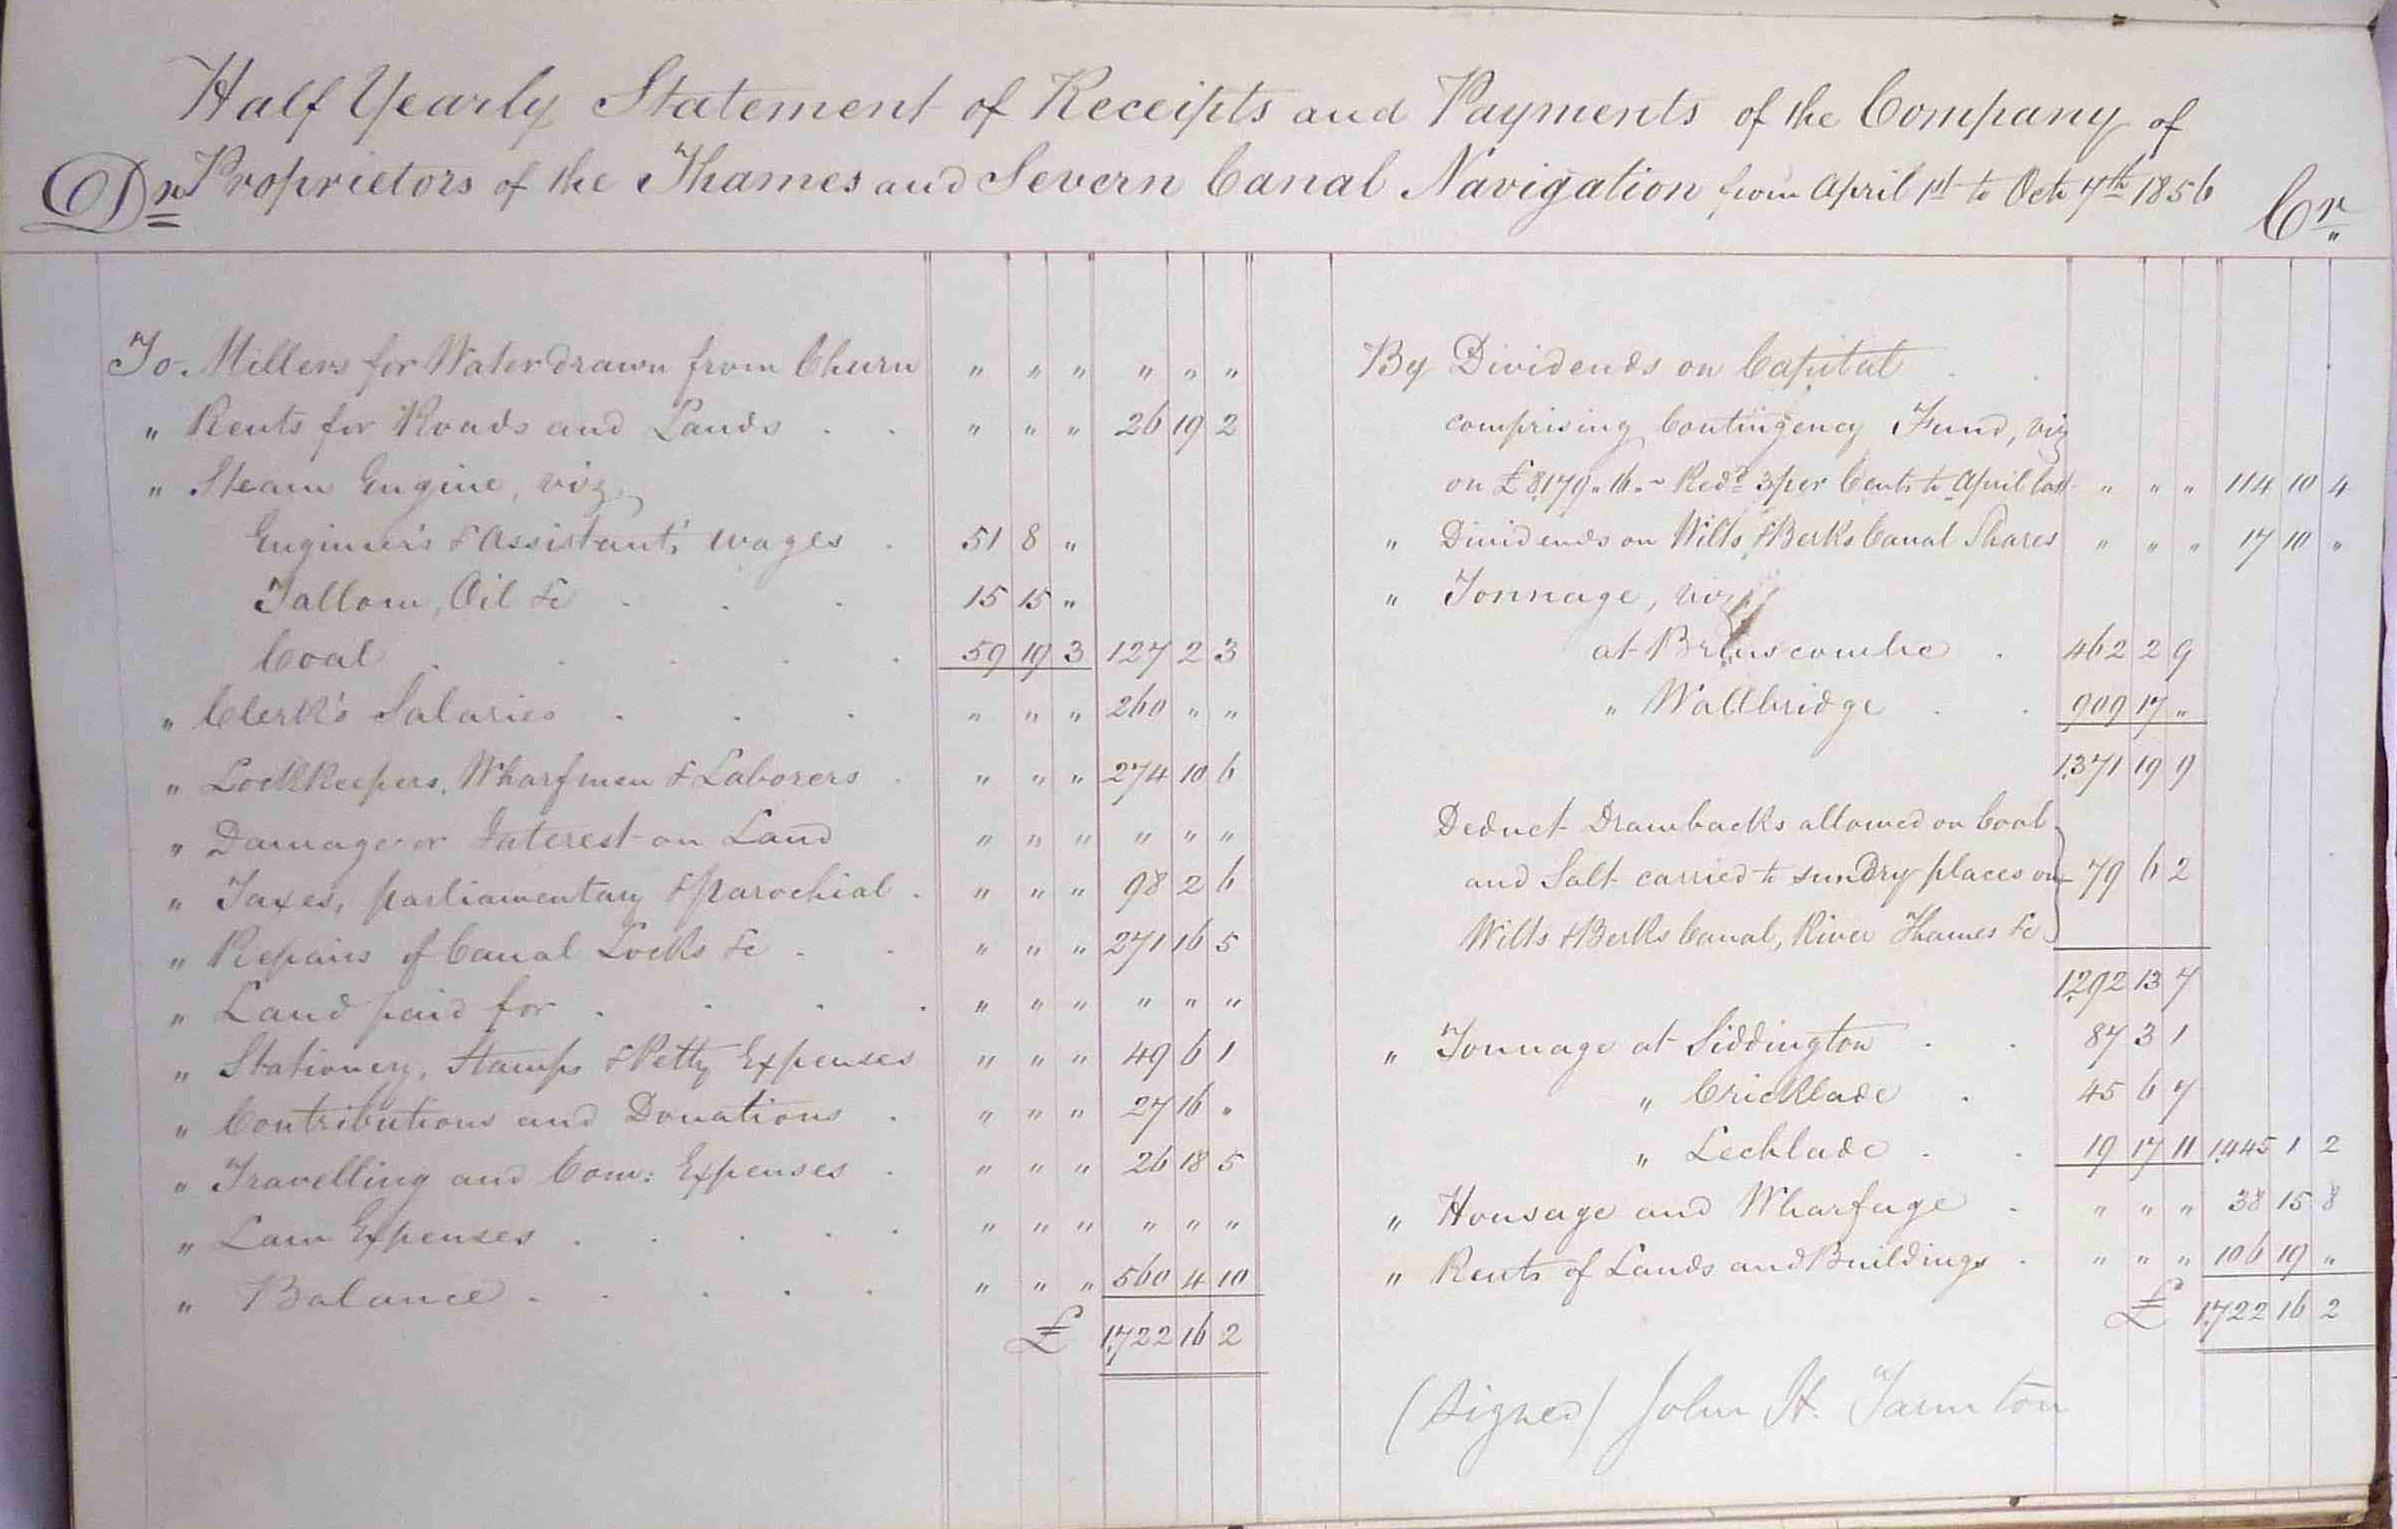 Half Yearly Statement of Receipts and Payments of the Company of
Dr Proprietors of the Thames and Severn Canal Navigation from April 1st to Oct 7th 1856 Cr
To Millers for Water drawn from Churn " " " " " "
" Rents for Roads and Lands . . " " " 26 19 2
" Steam Engine, viz
Engineer's & Assistant's wages . 51 8 "
Tallow, Oil &c . . . 15 15 "
Coal . . . . . 59 19 3 127 2 3
" Clerk's Salaries . . . " " " 260 " "
" Lockkeepers, Wharfmen & Laborers . " " " 274 10 6
" Damage or Interest on Land " " " " " "
" Taxes, parliamentary & parochial . " " " 98 2 6
" Repairs of Canal Locks &c . . " " " 271 16 5
" Land paid for . . . . " " " " " "
" Stationery, Stamps & Petty Expenses " " " 49 6 1
" Contributions and Donations . " " " 27 16 "
" Travelling and Com: Expenses . " " " 26 18 5
" Law Expenses . . . . . " " " " " "
" Balance . . . . . " " " 560 4 10
£ 1,722 16 2
By Dividends on Capital . .
comprising Contingency Fund, viz
on £8,179 " 16 " - Redd 3 per Cents to April last " " " 114 10 4
" Dividends on Wilts & Berks Canal Shares " " " 17 10 "
" Tonnage, viz
at Brimscombe . 462 2 9
" Wallbridge . . 909 17 "
1,371 19 9
Deduct Drawbacks allowed on Coal
and Salt carried to sundry places on 79 6 2
Wilts & Berks Canal, River Thames &c
1,292 13 7
" Tonnage at Siddington . . 87 3 1
" Cricklade . 45 6 7
" Lechlade . . 19 17 11 1,445 1 2
" Housage and Wharfage . " " " 38 15 8
" Rents of Lands and Buildings . " " " 106 19 "
£ 1,722 16 2
(signed) John H. Taunton